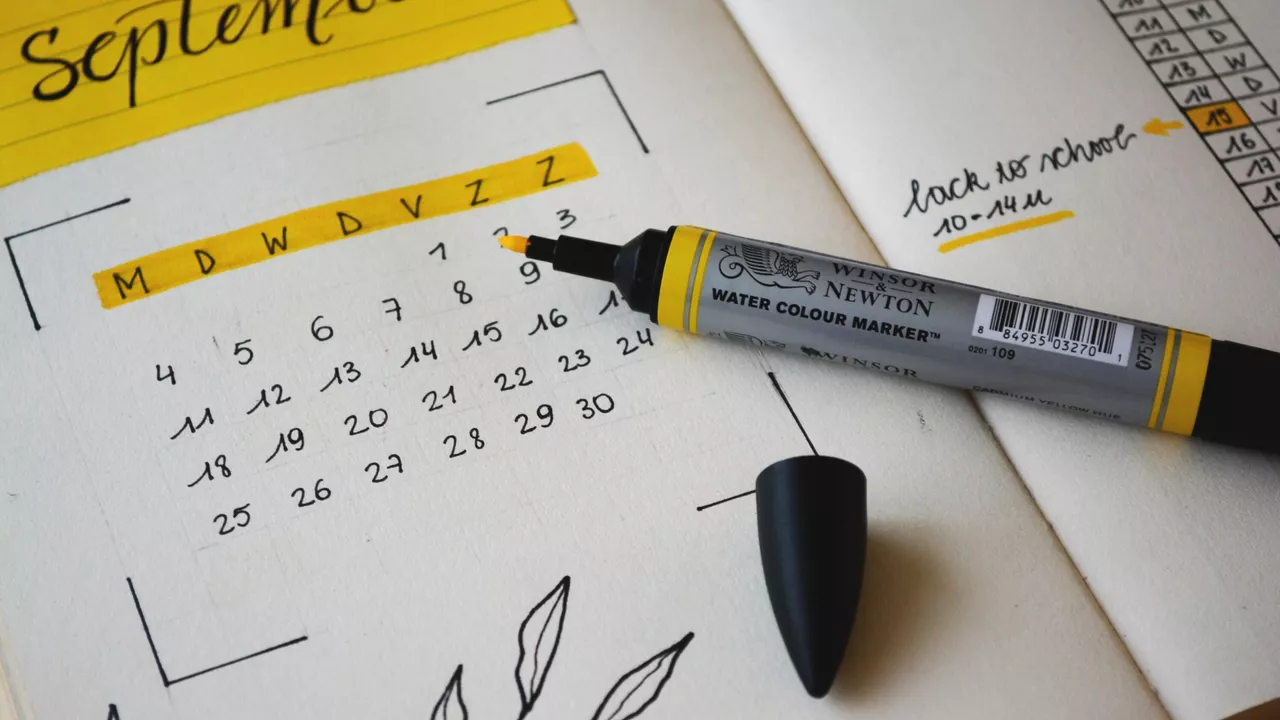 Septem
M D W D V Z Z
1 2 3
4 5 6 7 8 9
11 12 13 14 15 16
18 19 20 21 22 23 24
25 26 27 28 29 30
10
11 M
12 D
13 W
14 D
15 V
16
17
back to school
10-14u
WINSOR
&
NEWTON
WATER COLOUR MARKER™
WINSOR
8 84955 03270 1
0201 109
075127
CADMIUM YELLOW HUE